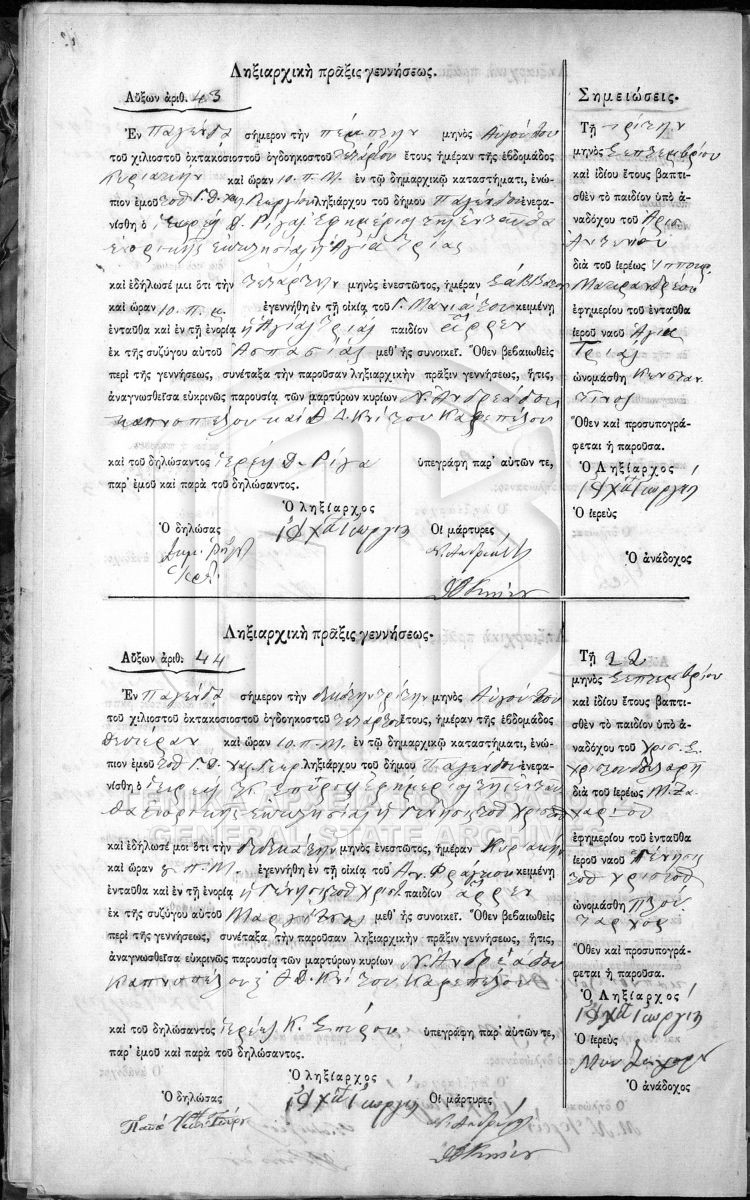 Ληξιαρχικὴ πρᾶξις γεννήσεως.
Αὔξων ἀριθ. 43
Ἐν σήμερον τὴν πέμπτην μηνὸς Αὐγούστου
τοῦ χιλιοστοῦ ὀκτακοσιοστοῦ ὀγδοηκοστοῦ τετάρτου ἔτους ἡμέραν τῆς ἑβδομάδος
Κυριακὴν καὶ ὥραν 10. π.Μ. ἐν τῷ δημαρχικῷ καταστήματι, ἐνώ-
πιον ἐμοῦ τοῦ Γ. Θ. Χ΄΄ Γεωργίου ληξιάρχου τοῦ δήμου ἐνεφα-
νίσθη ὁ Δ. Ρίγας Ἐφημέριος τῆς ἐνταῦθα
ἐνοριακῆς ἐκκλησίας ἡ Ἁγία Τριὰς
καὶ ἐδήλωσέ μοι ὅτι τὴν τετάρτην μηνὸς ἐνεστῶτος, ἡμέραν Σάββατον
καὶ ὥραν 10. π. μ. ἐγεννήθη ἐν τῇ οἰκίᾳ τοῦ Γ. Μανιάτου κειμένη
ἐνταῦθα καὶ ἐν τῇ ἐνορίᾳ ἡ Ἁγία Τριὰς παιδίον ἄρρεν
ἐκ τῆς συζύγου αὐτοῦ Ἀσπασίας μεθ' ἧς συνοικεῖ. Ὅθεν βεβαιωθεὶς
περὶ τῆς γεννήσεως, συνέταξα τὴν παροῦσαν ληξιαρχικὴν πρᾶξιν γεννήσεως, ἥτις,
ἀναγνωσθεῖσα εὐκρινῶς παρουσίᾳ τῶν μαρτύρων κυρίων Ν. Ἀνδρεάδου
καπνοπώλου καὶ Θ. Δ.
καὶ τοῦ δηλώσαντος ἱερέως Δ. Ρίγα ὑπεγράφη παρ' αὐτῶν τε,
παρ' ἐμοῦ καὶ παρὰ τοῦ δηλώσαντος.
Ὁ ληξίαρχος
Ὁ δηλώσας Οἱ μάρτυρες
Σημειώσεις.
Τῇ τρίτην
μηνὸς Σεπτεμβρίου
καὶ ἰδίου ἔτους βαπτι-
σθὲν τὸ παιδίον ὑπὸ ἀ-
ναδόχου τοῦ
διὰ τοῦ ἱερέως
ἐφημερίου τοῦ ἐνταῦθα
ἱεροῦ ναοῦ Ἁγία
Τριὰς
ὠνομάσθη Κωνσταν
τῖνος
Ὅθεν καὶ προσυπογρά-
φεται ἡ παροῦσα.
Ὁ Ληξίαρχος
Ὁ ἱερεὺς
Ὁ ἀνάδοχος
Ληξιαρχικὴ πρᾶξις γεννήσεως.
Αὔξων ἀριθ. 44
Ἐν σήμερον τὴν δεκάτην τρίτην μηνὸς Αὐγούστου
τοῦ χιλιοστοῦ ὀκτακοσιοστοῦ ὀγδοηκοστοῦ τετάρτου ἔτους, ἡμέραν τῆς ἑβδομάδος
Δευτέραν καὶ ὥραν 10. π.Μ. ἐν τῷ δημαρχικῷ καταστήματι, ἐνώ-
πιον ἐμοῦ τοῦ Γ. Θ. ληξιάρχου τοῦ δήμου ἐνεφα-
νίσθη ὁ ἱερεὺς Κ. Σπύρου ἐφημέριος τῆς ἐνταῦ
θα ἐνοριακῆς ἐκκλησίας ἡ Γέννησις τοῦ Χριστοῦ
καὶ ἐδήλωσέ μοι ὅτι τὴν δωδεκάτην μηνὸς ἐνεστῶτος, ἡμέραν Κυριακὴν
καὶ ὥραν π.Μ. ἐγεννήθη ἐν τῇ οἰκίᾳ τοῦ Αν. Φράγκου κειμένη
ἐνταῦθα καὶ ἐν τῇ ἐνορίᾳ ἡ Γέννησις τοῦ Χριστ. παιδίον ἄρρεν
ἐκ τῆς συζύγου αὐτοῦ μεθ' ἧς συνοικεῖ. Ὅθεν βεβαιωθεὶς
περὶ τῆς γεννήσεως, συνέταξα τὴν παροῦσαν ληξιαρχικὴν πρᾶξιν γεννήσεως, ἥτις,
ἀναγνωσθεῖσα εὐκρινῶς παρουσίᾳ τῶν μαρτύρων κυρίων Ν. Ἀνδρεάδου
καπνοπώλου
καὶ τοῦ δηλώσαντος ἱερέως Κ. Σπύρου ὑπεγράφη παρ' αὐτῶν τε,
παρ' ἐμοῦ καὶ παρὰ τοῦ δηλώσαντος.
Ὁ ληξίαρχος
Ὁ δηλώσας Οἱ μάρτυρες
Τῇ 22
μηνὸς Σεπτεμβρίου
καὶ ἰδίου ἔτους βαπτι-
σθὲν τὸ παιδίον ὑπὸ ἀ-
ναδόχου τοῦ
διὰ τοῦ ἱερέως Μ. Ζα
χαρίου
ἐφημερίου τοῦ ἐνταῦθα
ἱεροῦ ναοῦ Γέννησις
τοῦ Χριστοῦ
ὠνομάσθη Πλού
ταρχος
Ὅθεν καὶ προσυπογρά-
φεται ἡ παροῦσα.
Ὁ Ληξίαρχος
Ὁ ἱερεὺς
Ὁ ἀνάδοχος
ΓΕΝΙΚΑ ΑΡΧΕΙΑ ΤΟΥ ΚΡΑΤΟΥΣ
GENERAL STATE ARCHIVES